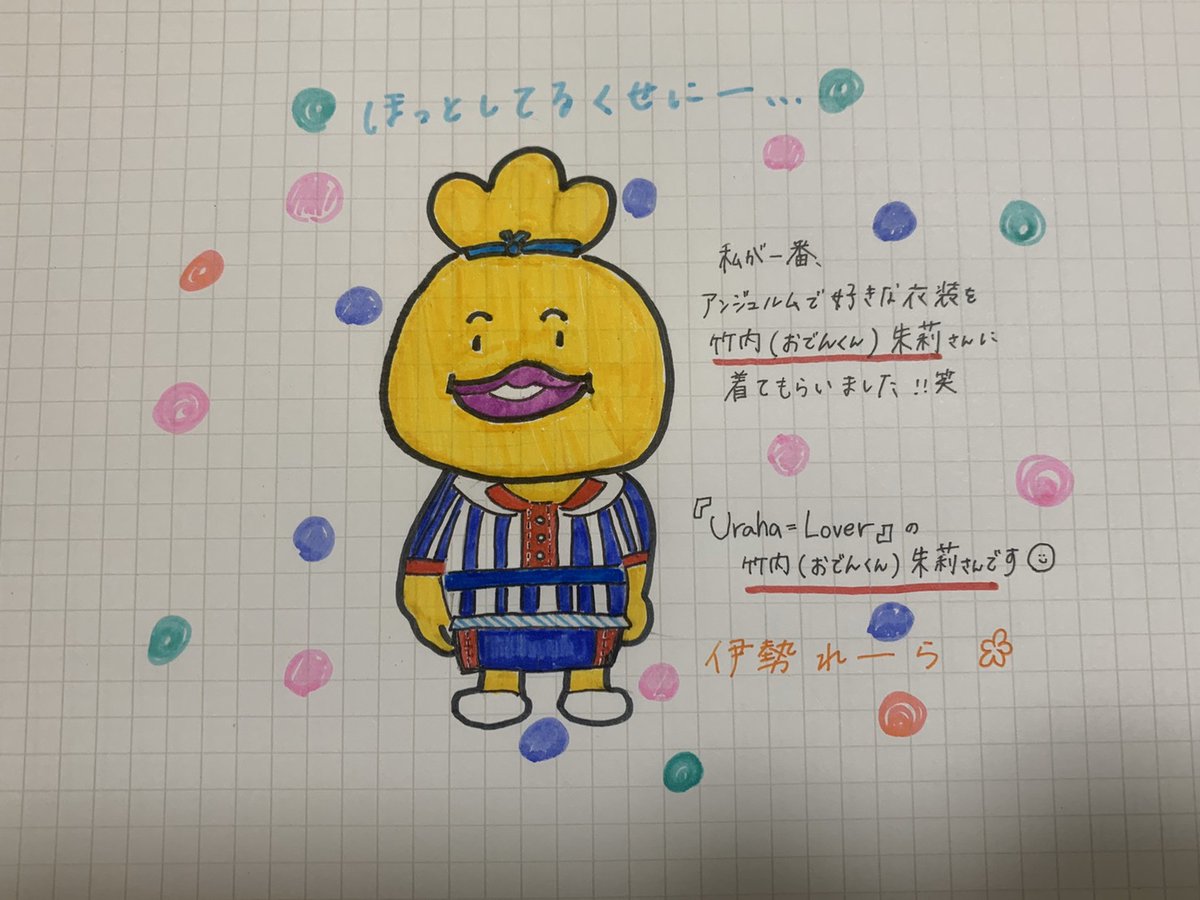 ほっとしてるくせにー...
私が一番、
アンジュルムで好きな衣装を
竹内(おでんくん)朱莉さんに
着てもらいました!!笑
『Uraha=Lover』の
竹内(おでんくん)朱莉さんです
伊勢れーら